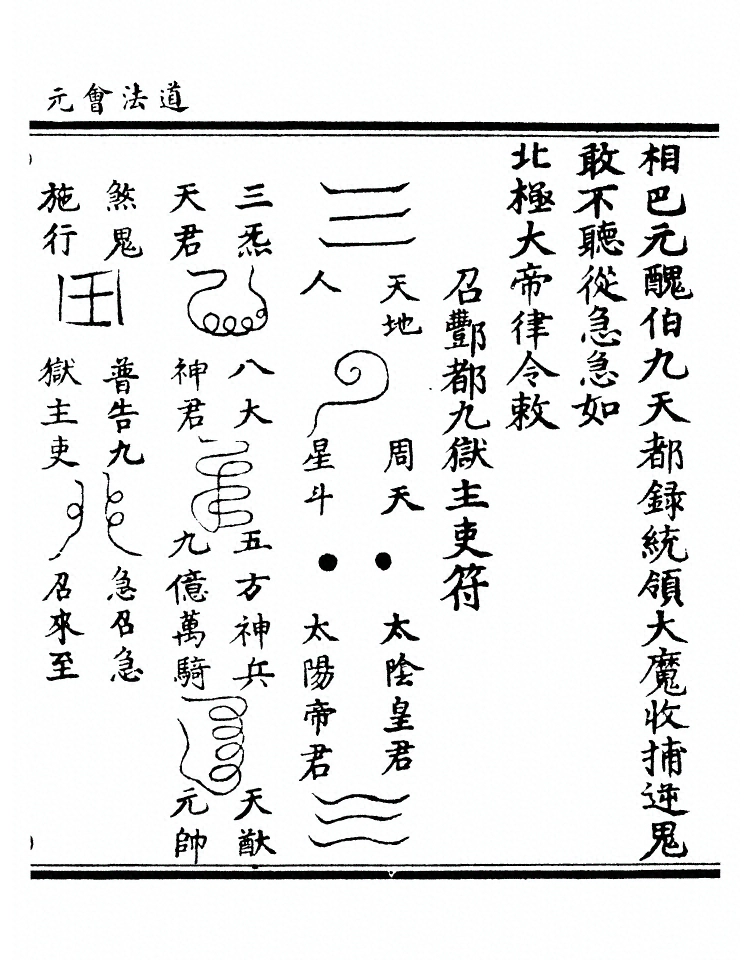 道法會元
相巴元醜伯九天都録統領大魔收捕逆鬼
敢不聽從急急如
北極大帝律令敕
召酆都九獄主吏符
天地
人
周天
星斗
太陰皇君
太陽帝君
三炁
天君
八大
神君
五方神兵
九億萬騎
天猷
元帥
煞鬼
施行
普告九
獄主吏
急召急
召來至